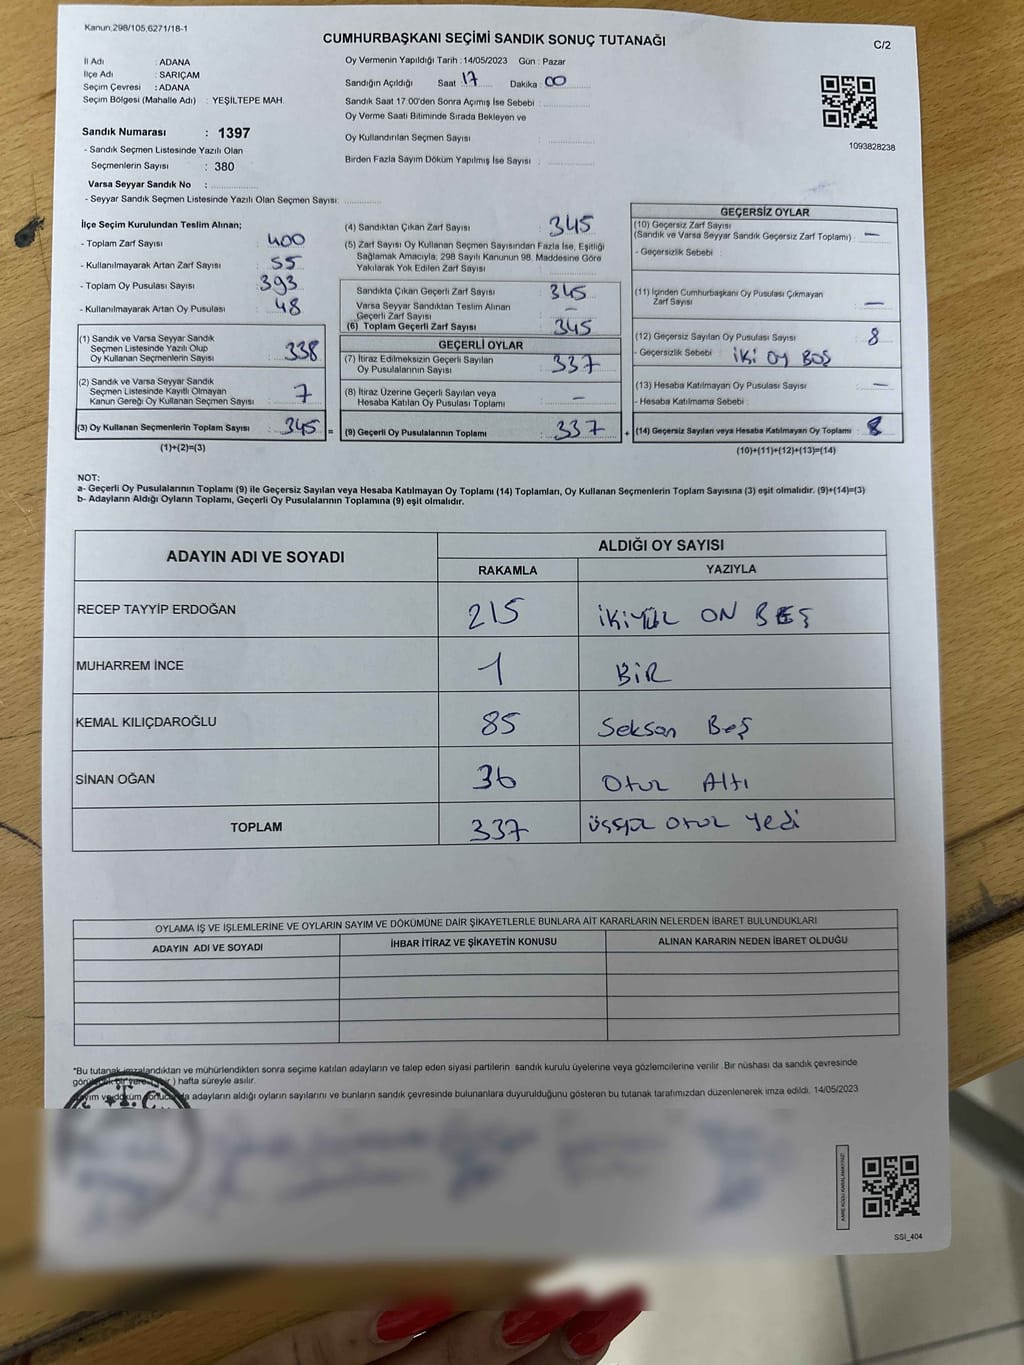 Kanun.298/105,6271/18-1
CUMHURBAŞKANI SEÇİMİ SANDIK SONUÇ TUTANAĞI
C/2
İl Adı : ADANA
İlçe Adı : SARIÇAM
Seçim Çevresi : ADANA
Seçim Bölgesi (Mahalle Adı) : YEŞİLTEPE MAH.
Sandık Numarası : 1397
- Sandık Seçmen Listesinde Yazılı Olan
Seçmenlerin Sayısı : 380
Varsa Seyyar Sandık No :
- Seyyar Sandık Seçmen Listesinde Yazılı Olan Seçmen Sayısı:
Oy Vermenin Yapıldığı Tarih :14/05/2023 Gün : Pazar
Sandığın Açıldığı Saat 17 Dakika : 00
Sandık Saat 17:00'den Sonra Açımış İse Sebebi :
Oy Verme Saati Bitiminde Sırada Bekleyen ve
Oy Kullandırılan Seçmen Sayısı :
Birden Fazla Sayım Döküm Yapılmış İse Sayısı :
1093828238
İlçe Seçim Kurulundan Teslim Alınan;
- Toplam Zarf Sayısı : 400
- Kullanılmayarak Artan Zarf Sayısı : 55
- Toplam Oy Pusulası Sayısı : 393
- Kullanılmayarak Artan Oy Pusulası : 48
(1) Sandık ve Varsa Seyyar Sandık
Seçmen Listesinde Yazılı Olup
Oy Kullanan Seçmenlerin Sayısı : 338
(2) Sandık ve Varsa Seyyar Sandık
Seçmen Listesinde Kayıtlı Olmayan
Kanun Gereği Oy Kullanan Seçmen Sayısı : 7
(3) Oy Kullanan Seçmenlerin Toplam Sayısı : 345 =
(1)+(2)=(3)
(4) Sandıktan Çıkan Zarf Sayısı : 345
(5) Zarf Sayısı Oy Kullanan Seçmen Sayısından Fazla İse, Eşitliği
Sağlamak Amacıyla, 298 Sayılı Kanunun 98. Maddesine Göre
Yakılarak Yok Edilen Zarf Sayısı :
Sandıkta Çıkan Geçerli Zarf Sayısı : 345
Varsa Seyyar Sandıktan Teslim Alınan
Geçerli Zarf Sayısı : -
(6) Toplam Geçerli Zarf Sayısı : 345
GEÇERLİ OYLAR
(7) İtiraz Edilmeksizin Geçerli Sayılan
Oy Pusulalarının Sayısı : 337
(8) İtiraz Üzerine Geçerli Sayılan veya
Hesaba Katılan Oy Pusulası Toplamı : -
(9) Geçerli Oy Pusulalarının Toplamı : 337 +
GEÇERSİZ OYLAR
(10) Geçersiz Zarf Sayısı
(Sandık ve Varsa Seyyar Sandık Geçersiz Zarf Toplamı) : -
- Geçersizlik Sebebi :
(11) İçinden Cumhurbaşkanı Oy Pusulası Çıkmayan
Zarf Sayısı : -
(12) Geçersiz Sayılan Oy Pusulası Sayısı : 8
- Geçersizlik Sebebi : İKİ OY BOŞ
(13) Hesaba Katılmayan Oy Pusulası Sayısı : -
- Hesaba Katılmama Sebebi :
(14) Geçersiz Sayılan veya Hesaba Katılmayan Oy Toplamı : 8
(10)+(11)+(12)+(13)=(14)
NOT:
a- Geçerli Oy Pusulalarının Toplamı (9) ile Geçersiz Sayılan veya Hesaba Katılmayan Oy Toplamı (14) Toplamları, Oy Kullanan Seçmenlerin Toplam Sayısına (3) eşit olmalıdır. (9)+(14)=(3)
b- Adayların Aldığı Oyların Toplamı, Geçerli Oy Pusulalarının Toplamına (9) eşit olmalıdır.
ADAYIN ADI VE SOYADI
ALDIĞI OY SAYISI
RAKAMLA YAZIYLA
RECEP TAYYİP ERDOĞAN 215 İKİYÜZ ON BEŞ
MUHARREM İNCE 1 BİR
KEMAL KILIÇDAROĞLU 85 Seksan Beş
SİNAN OĞAN 36 Otuz Altı
TOPLAM 337 otuz yedi
OYLAMA İŞ VE İŞLEMLERİNE VE OYLARIN SAYIM VE DÖKÜMÜNE DAİR ŞİKAYETLERLE BUNLARA AİT KARARLARIN NELERDEN İBARET BULUNDUKLARI
ADAYIN ADI VE SOYADI İHBAR İTİRAZ VE ŞİKAYETİN KONUSU ALINAN KARARIN NEDEN İBARET OLDUĞU
*Bu tutanak imzalandıktan ve mühürlendikten sonra seçime katılan adayların ve talep eden siyasi partilerin sandık kurulu üyelerine veya gözlemcilerine verilir. Bir nüshası da sandık çevresinde
görülecek bir yere ( bir ) hafta süreyle asılır.
Sayım ve döküm sonucunda adayların aldığı oyların sayılarını ve bunların sandık çevresinde bulunanlara duyurulduğunu gösteren bu tutanak tarafımızdan düzenlenerek imza edildi. 14/05/2023
T.C.
SSI_404